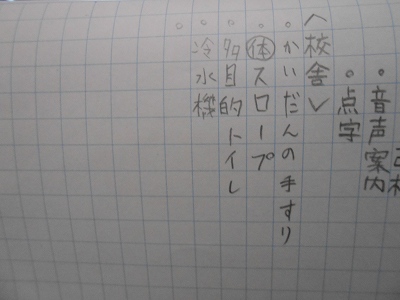 。音声案内
。点字
〈校舎〉
。かいだんの手すり
。㊍スロープ
。多目的トイレ
。冷水機
。